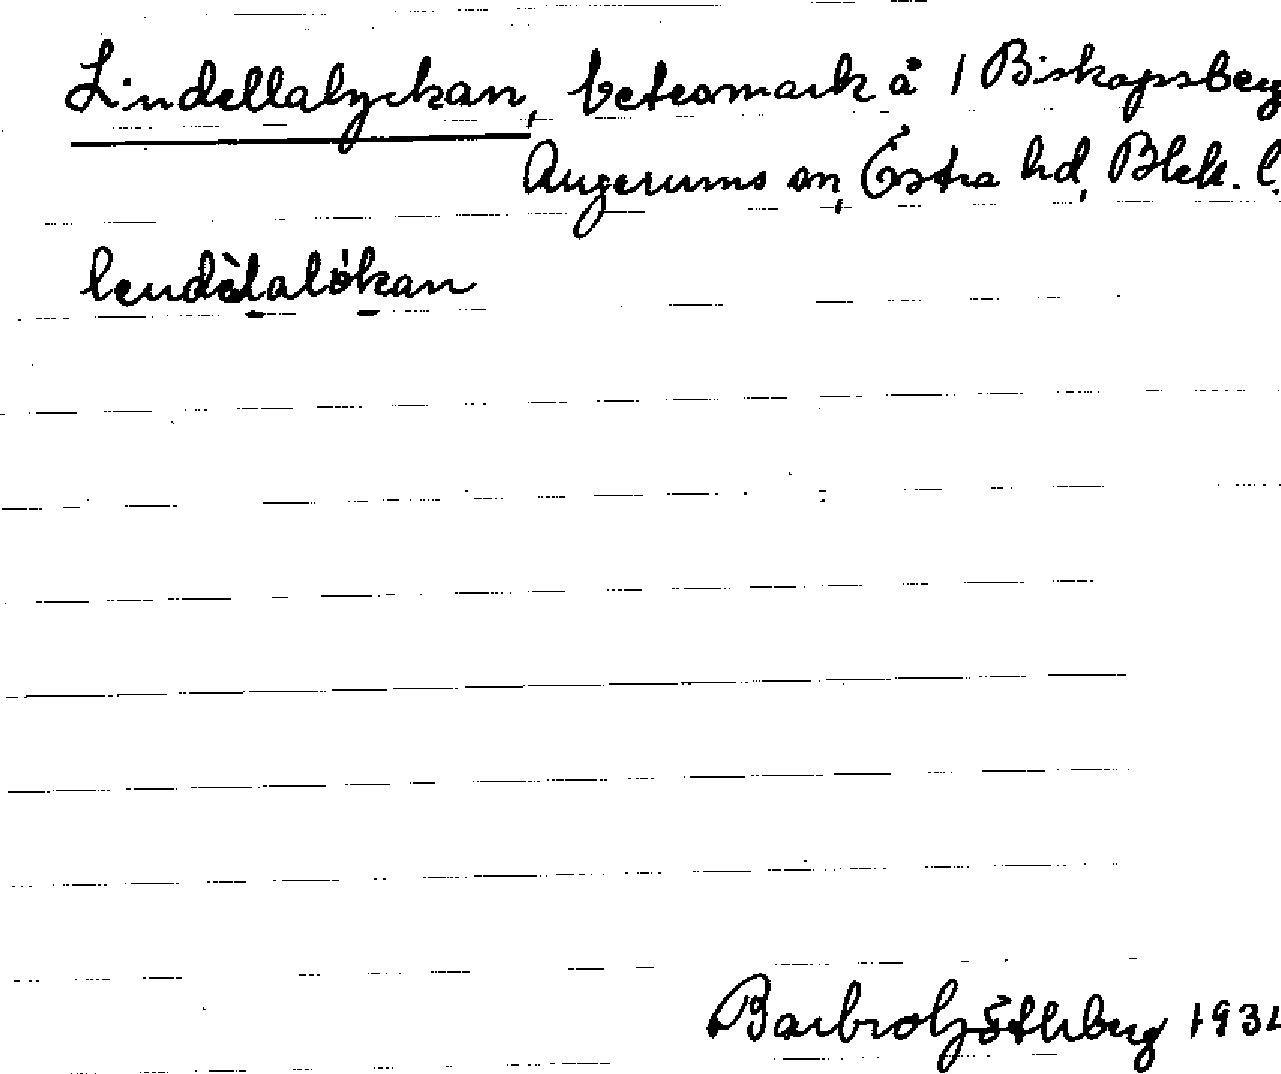 Lindellalyckan, betesmark å 1 Biskopsberg
Augerums sn, Östra hd, Blek. l.
lendèlalókan
Barbro Göthberg